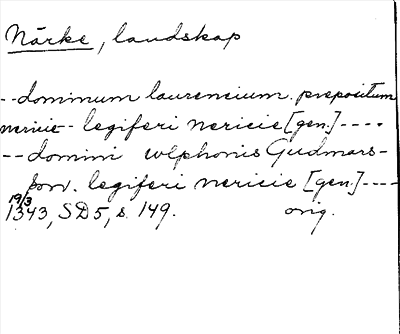 Närke, landskap
--dominum laurencium. prepositum
nericie-- legiferi nericie [gen.]----
--domini vlphonis Gudmars-
son. legiferi nericie [gen.]----
19/3
1343, SD5, s. 149. orig.